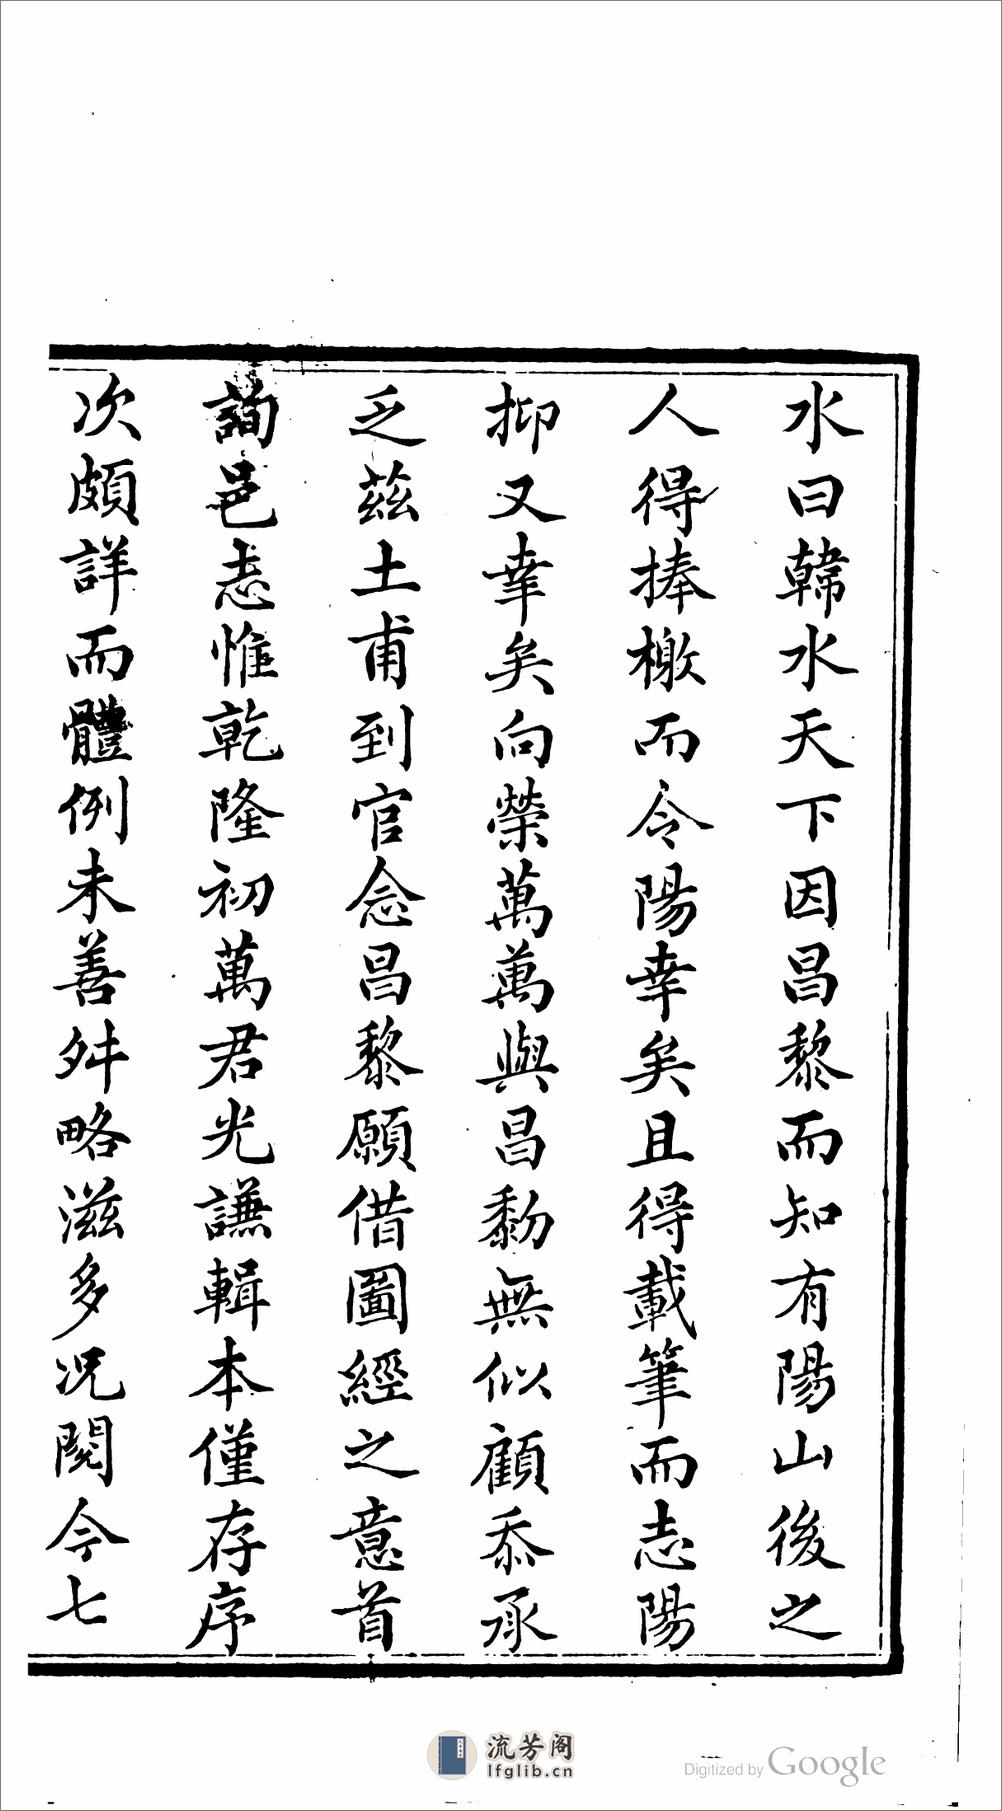 水曰韓水天下因昌黎而知有陽山後之
人得捧檄而令陽幸矣且得載筆而志陽
抑又幸矣向榮萬萬與昌黎無似顧忝承
乏茲土甫到官念昌黎願借圖經之意首
詢邑志惟乾隆初萬君光謙輯本僅存序
次頗詳而體例未善舛略滋多况閱今七
流芳阁
lfglib.cn
Digitized by Google